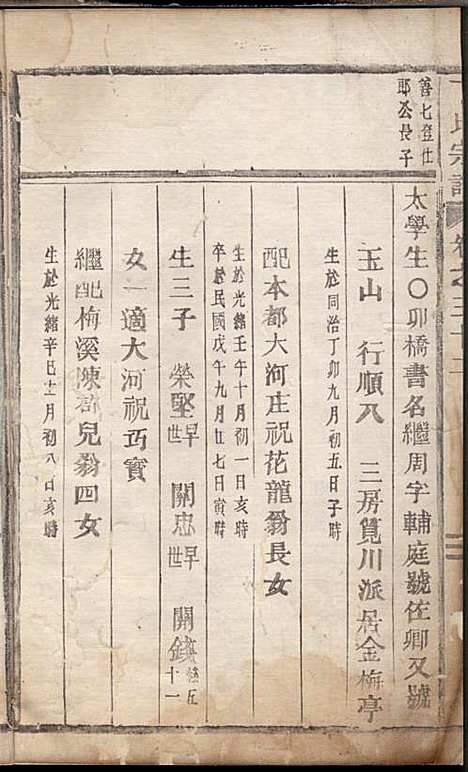 氏宗譜
善七登仕
郎公長子
太學生〇卯橋書名繼周字輔庭號佐卿又號
玉山 行順八 三房筧川派居金梅亭
生於同治丁卯九月初五日子時
配本都大河庄祝花龍翁長女
生於光緒壬午十月初一日亥時
卒於民國戊午九月廿七日寅時
生三子 榮堅早世 關忠早世 關錢
女一適大河祝丙寶
繼配梅溪陳群兒翁四女
生於光緒辛巳十二月初八日亥時